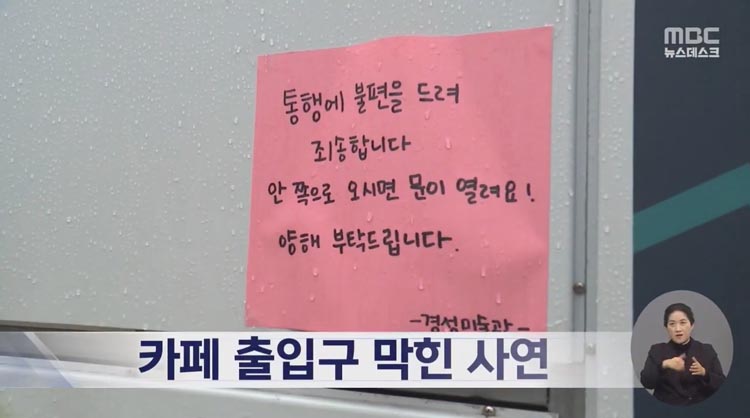 MBC
뉴스데스크
통행에 불편을 드려
죄송합니다
안 쪽으로 오시면 문이 열려요!
양해 부탁드립니다.
-경성미술관-
카페 출입구 막힌 사연